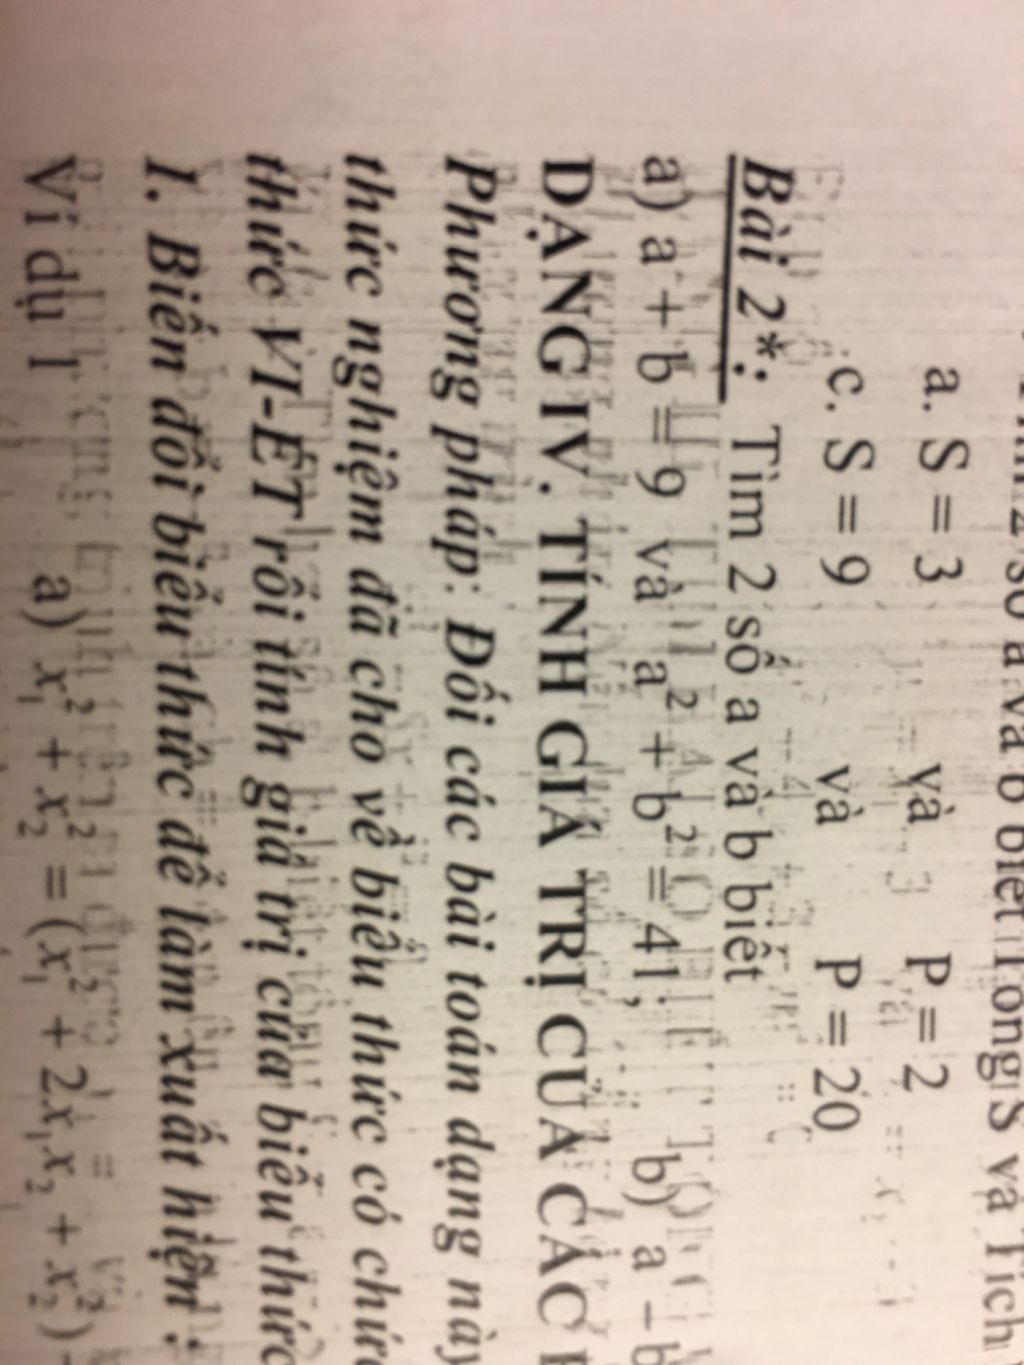 số a và b biết Tổng S và Tích
a. S = 3 và P = 2
c. S = 9 và P = 20
Bài 2*: Tìm 2 số a và b biết
a) a + b = 9 và a² + b² = 41; b) a – b
DẠNG IV. TÍNH GIÁ TRỊ CỦA CÁC
Phương pháp: Đối các bài toán dạng này
thức nghiệm đã cho về biểu thức có chứa
thức VI-ÉT rồi tính giá trị của biểu thức
1. Biến đổi biểu thức để làm xuất hiện :
Ví dụ 1 a) x₁² + x₂² = (x₁² + 2x₁x₂ + x₂²)